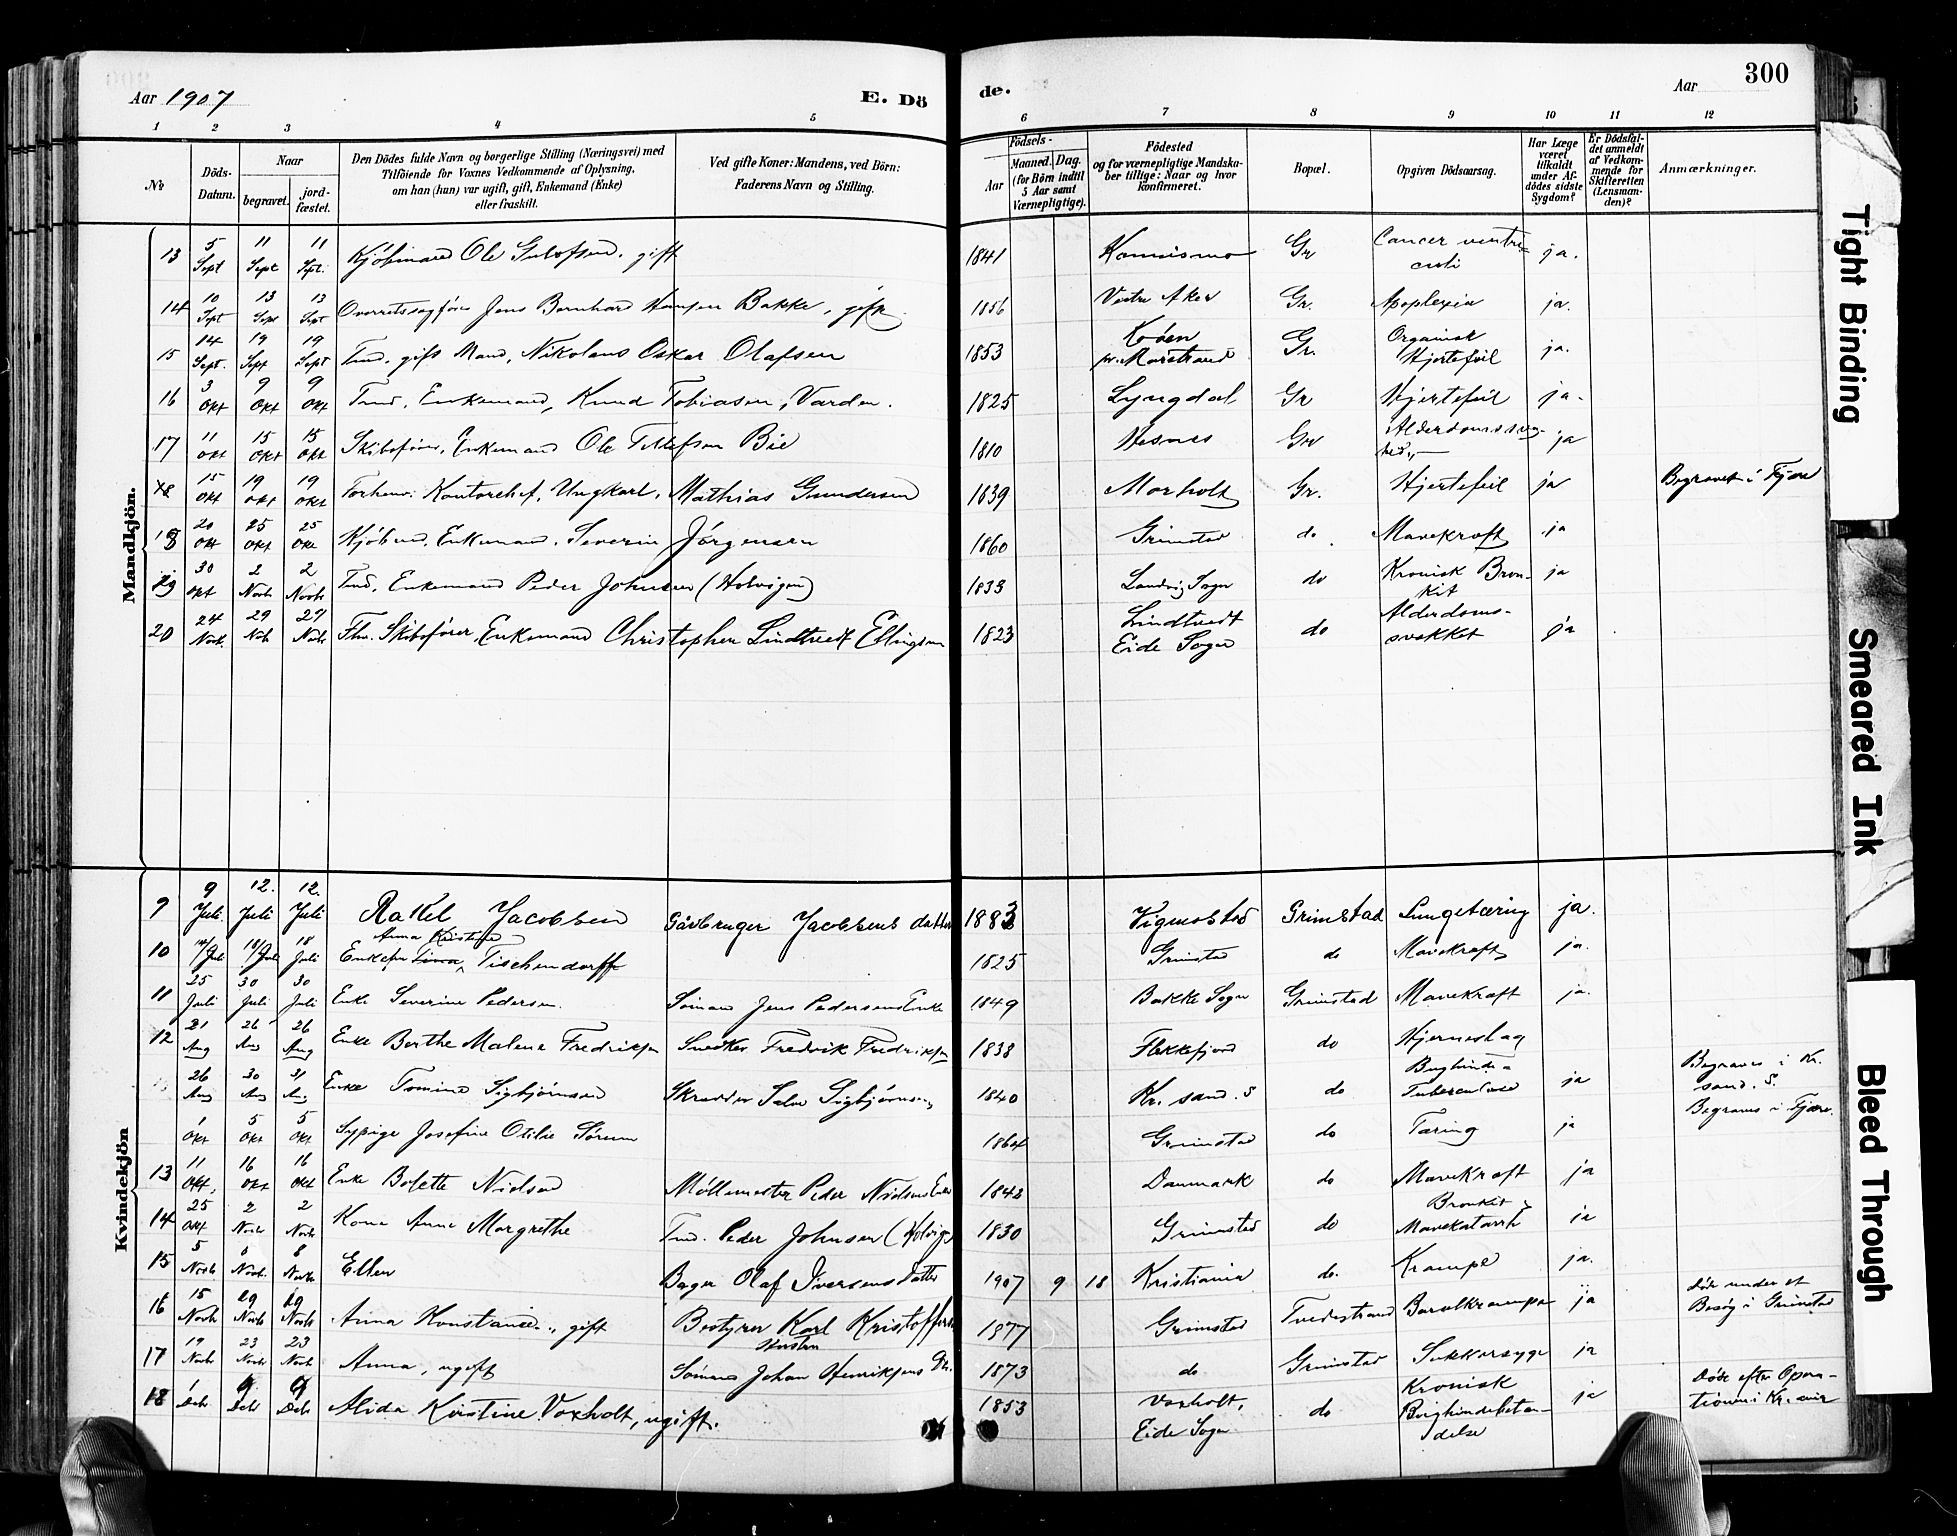 Aar 1907
E. Dö
de.
Aar
300
1 2 3 4 5 6 7 8 9 10 11 12
No
Döds-Datum.
Naar
begravet.
jord-fæstet.
Den Dödes fulde Navn og borgerlige Stilling (Næringsvei) med
Tilföiende for Voxnes Vedkommende af Oplysning,
om han (hun) var ugift, gift, Enkemand (Enke)
eller fraskilt.
Ved gifte Koner: Mandens, ved Börn:
Faderens Navn og Stilling.
Födsels-
Aar
Maaned. Dag.
(for Börn indtil
5 Aar samt
Værnepligtige).
Födested
og for værnepligtige Mandska-
ber tillige: Naar og hvor
konfirmeret.
Bopæl.
Opgiven Dödsaarsag.
Har Læge
været
tilkaldt
under Af-
dödes sidste
Sygdom?
Er Dödsfal-
det anmeldt
af Vedkom-
mende for
Skifteretten
(Lensman-
den)?
Anmærkninger.
Mandkjön.
13 5 Sept 11 Sept 11 Sept. Kjöbmand Ole , gift 1841 Gr Cancer ventri-culi ja.
14 10 Sept 13 Sept 13 Sept Overretssagförer Jens Bernhard Hansen Bakke, gift 1856 Vestre Aker Gr. Apoplexia ja.
15 14 Sept. 19 Sept 19 Sept Tmd. gift Mand, Nikolaus Oskar Olafsen 1853 Koöen pr. Marstrand Gr. Organisk Hjertefeil ja.
16 3 Okt 9 Okt 9 Okt Tmd. Enkemand, Knud Tobiasen, Varden. 1825 Lyngdal Gr Hjertefeil ja.
17 11 Okt 15 Okt 15 Okt Skibsförer, Enkemand Ole Tellefsen Bie 1810 Vesnes Gr Alderdomssvag-hed ja
18 15 Okt 19 Okt 19 Okt Forhenv. Kontorchef, Ungkarl, Mathias Gundersen 1839 Morholt Gr. Hjertefeil ja Begravet i Fjære
18 20 Okt 25 Okt 25 Okt Kjöbmd. Enkemand. Severin Jörgensen 1860 Grimstad do Mavekræft ja
19 30 Okt 2 Novb 2 Novb Tmd. Enkemand Peder Johnsen (Holvigen) 1833 Landvig Sogn do Kronisk Bron-kit ja
20 24 Novb. 29 Novb 29 Novb Fhv. Skibsförer, Enkemand Christopher Lindtvedt Ellingsen 1823 Lindtvedt Eide Sogn do Alderdoms-svakket ja
Kvindekjön
9 9 Juli 12. Juli 12. Juli Rakel Jacobsen Gårdbruger Jacobsens datter 1883 Vigmostad Grimstad Lungetæring ja.
Anna Kristofa
10 14/Juli 18/Juli 18 Juli Enkefru Tischendorff 1825 Grimstad do Mavekræft ja.
11 25 Juli 30 Juli 30 Juli Enke Severine Pedersen. Sömand Jens Pedersens Enke 1849 Bakke Sogn Grimstad Mavekræft ja.
12 21 Aug 26 Aug 26 Aug Enke Berthe Malene Fredriksen Snedker Fredrik Fredriksen 1838 Flekkefjord do Hjerneslag
26 Aug 30 Aug 31 Aug Enke Tomine Sigbjörnsen Skrædder Salve Sigbjörnsen 1840 Kr. sand. S do Bughinde-Tuberculose ja Begraves i Kr.sand. S.
1 Okt 5 Okt 5 Okt Sypige Josefine Otilie Sörum 1864 Grimstad do Tæring ja Begraves i Fjære.
13 11 Okt. 16 Okt 16 Okt Enke Bolette Nielsen Möllemester Peder Nielsens Enke 1842 Danmark do Mavekræft ja
14 25 Okt 2 Novb 2 Novb Kone Anne Margrethe Tmd. Peder Johnsen (Holvigen 1830 Grimstad do Bronkit & Mavekatarrh ja
15 5 Novb 8 Novb. 8 Novb Ellen Bager Olaf Iversens Datter 1907 9 18 Kristiania do. Krampe ja.
16 15 Novb 19 Novb 19 Novb Anna Konstance, gift Bestyrer Karl Kristoffersen 1877 Grimstad Tvedestrand Barselkrampe ja Döde under et Besög i Grimstad
17 19 Novb 23 Novb 23 Novb Anna, ugift Sömand Johan Henriksens Dtr. 1873 do Grimstad Sukkersyge ja
18 1 Decb 9 Decb 9 Decb Alida Kirstine Voxholt, ugift. 1853 Voxholt, Eide Sogn do Kronisk Bughindebetæn-delse ja Döde efter Opera-tionen i Kr.
Tight Binding
Smeared Ink
Bleed Through